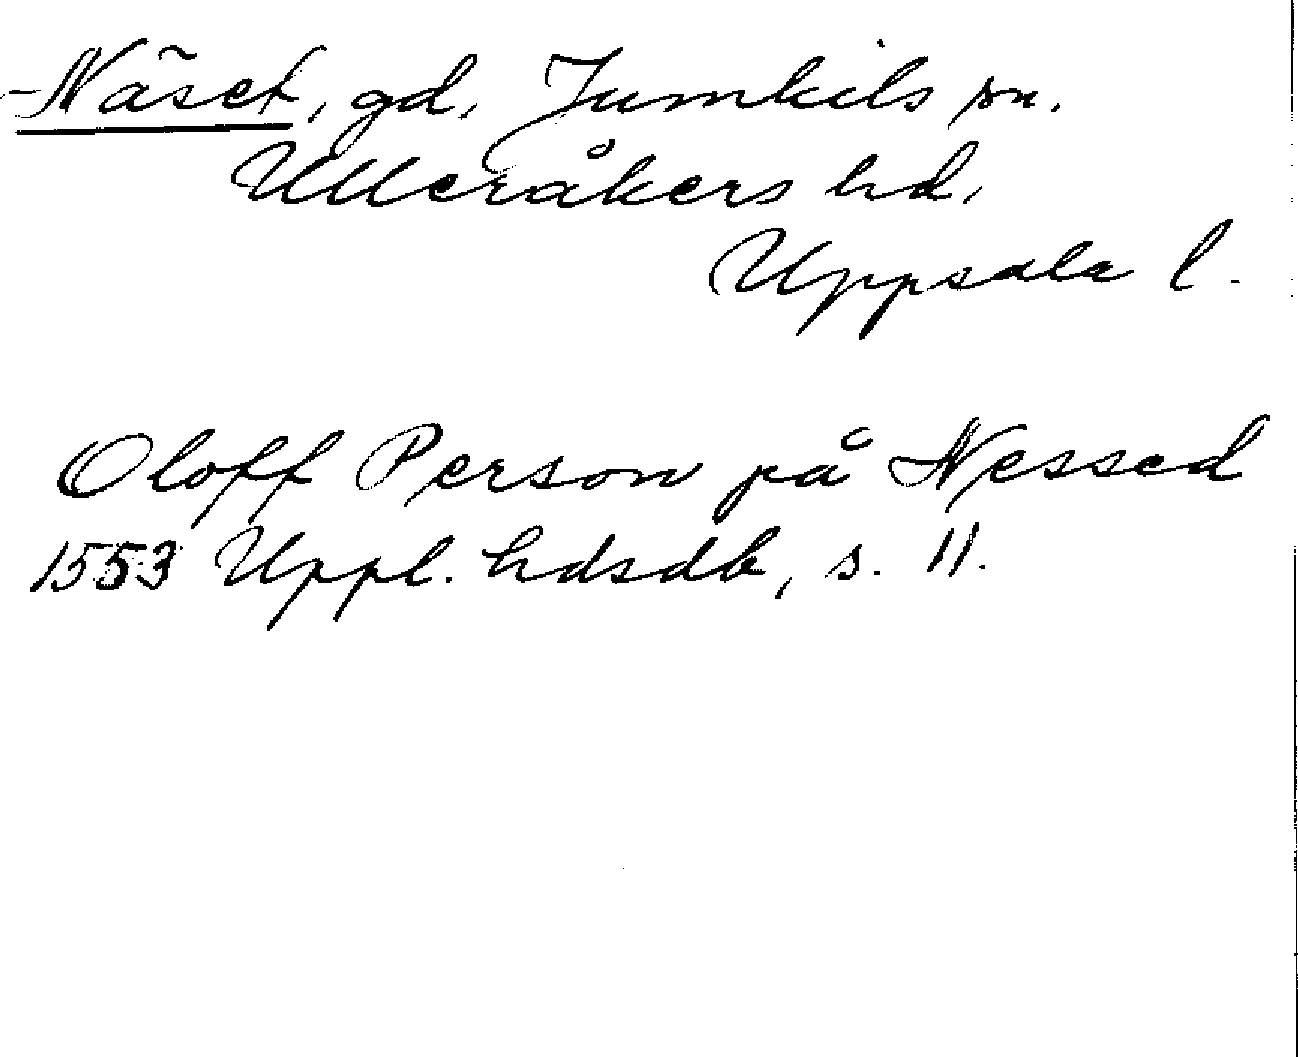 Näset, gd, Jumkils sn.
Ulleråkers hd,
Uppsala l.
Oloff Person på Nessed
1553 Uppl. hdsdb, s. 11.